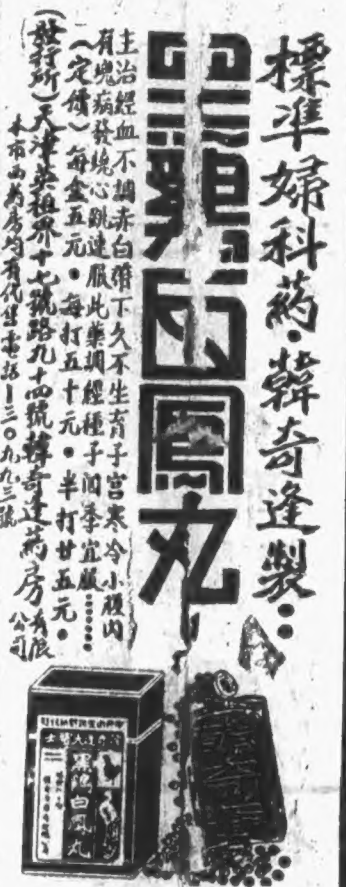 標準婦科葯·韓奇逢製
黑雞白鳳丸
主治經血不調赤白帶下久不生育子宮寒冷小腹內
有塊病發燒心跳速服此藥調經種子四季宜服……
(定價)每盒五元·每打五十元·半打廿五元·
(發行所)天津英租界十七號路九十四號韓奇逢葯房有限公司
本市西葯房均有代售電話-三〇九九三號
黑雞白鳳丸